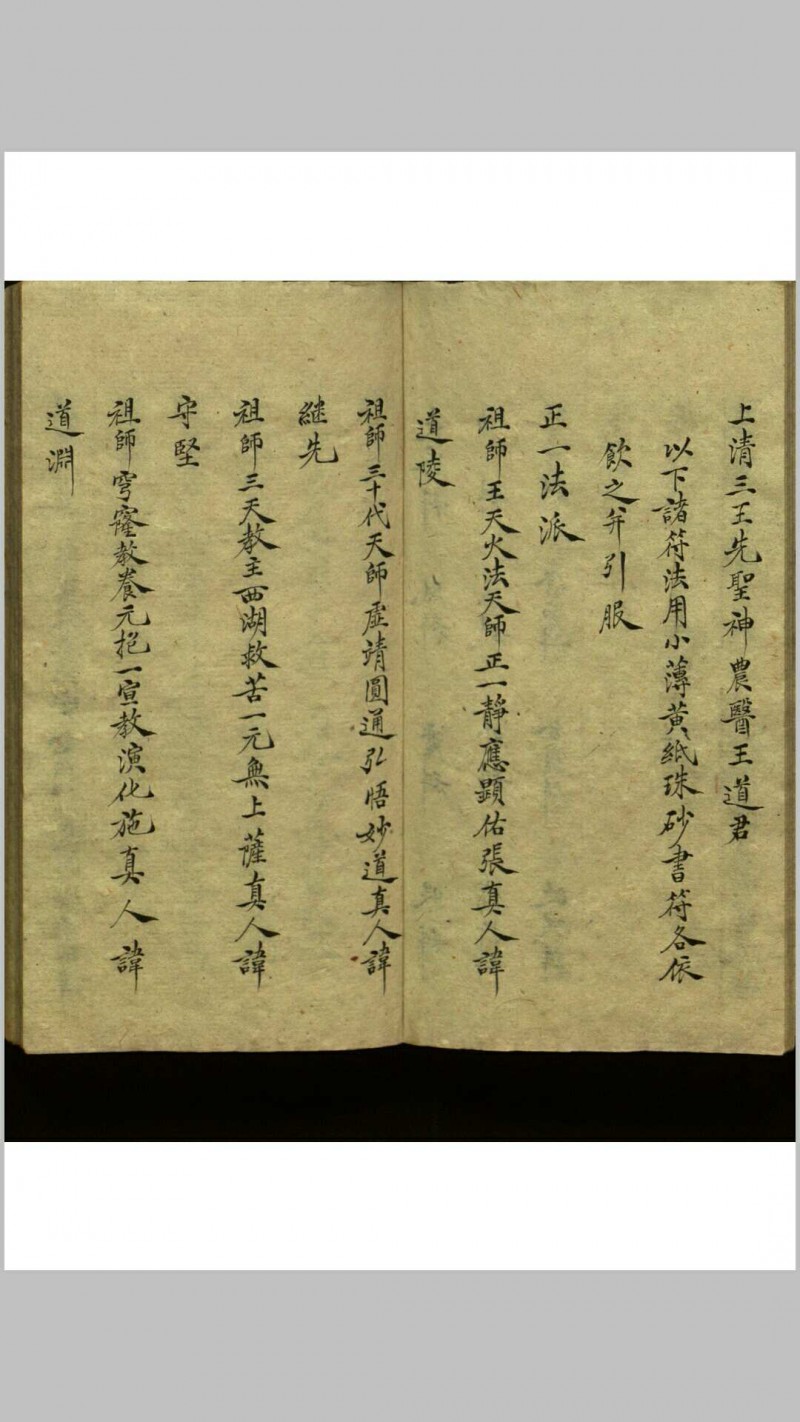 上清三王先聖神農醫王道君
以下諸符法用小薄黃紙珠砂書符各依
飲之并引服
正一法派
祖師王天火法天師正一靜應顯佑張真人諱
道陵
祖師三十代天師虛靖圓通弘悟妙道真人諱
継先
祖師三天教主西湖救苦一元無上薩真人諱
守堅
祖師穹窿教養元抱一宣教演化施真人諱
道淵